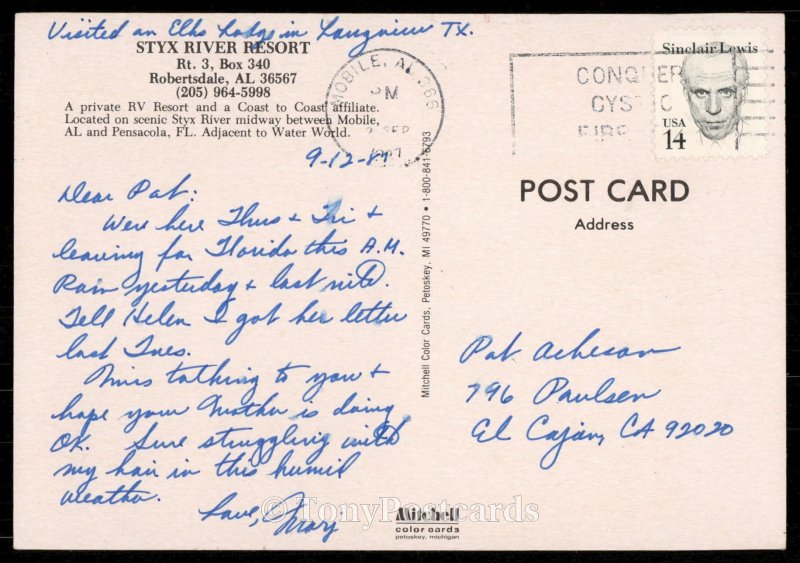 Visited an Elks Lodge in Longview TX.
STYX RIVER RESORT
Rt. 3, Box 340
Robertsdale, AL 36567
(205) 964-5998
A private RV Resort and a Coast to Coast affiliate.
Located on scenic Styx River midway between Mobile,
AL and Pensacola, FL. Adjacent to Water World.
9-12-87
Dear Pat:
Were here Thurs & Fri &
leaving for Florida this A.M.
Rain yesterday & last nite.
Tell Helen I got her letter
last Tues.
Miss talking to you &
hope your Mother is doing
OK. Sure struggling with
my hair in this humid
weather.
Love, Mary
MOBILE, AL 366
PM
SEP
1987
CONQUER
CYSTIC
FIBR
Sinclair Lewis
USA
14
POST CARD
Address
Pat Acheson
796 Paulsen
El Cajon, CA 92020
Mitchell Color Cards, Petoskey, MI 49770 • 1-800-841-6793
Mitchell
color cards
petoskey, michigan
© TonyPostcards